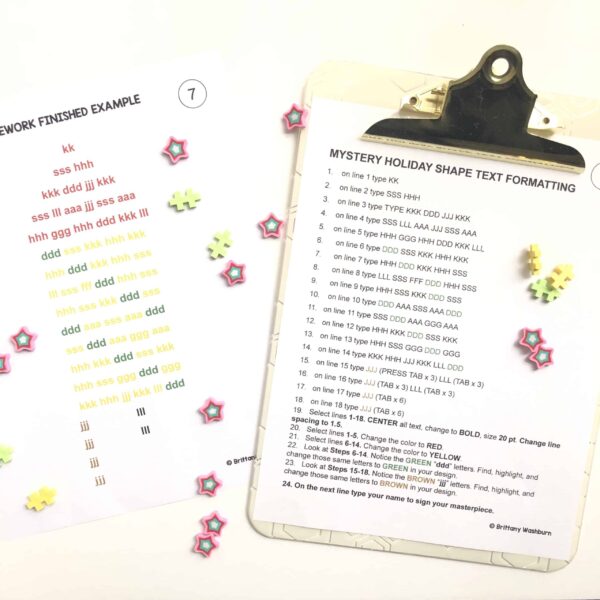 EWORK FINISHED EXAMPLE
7
kk
sss hhh
kkk ddd jjj kkk
sss lll aaa jjj sss aaa
hhh ggg hhh ddd kkk lll
ddd sss kkk hhh kkk
hhh ddd kkk hhh sss
lll sss fff ddd hhh sss
hhh sss kkk ddd sss
ddd aaa sss aaa ddd
sss ddd aaa ggg aaa
hhh kkk ddd sss kkk
hhh sss ggg ddd ggg
kkk hhh jjj kkk lll ddd
jjj lll
jjj lll
jjj
jjj
© Brittany Wash
MYSTERY HOLIDAY SHAPE TEXT FORMATTING
1. on line 1 type KK
2. on line 2 type SSS HHH
3. on line 3 type TYPE KKK DDD JJJ KKK
4. on line 4 type SSS LLL AAA JJJ SSS AAA
5. on line 5 type HHH GGG HHH DDD KKK LLL
6. on line 6 type DDD SSS KKK HHH KKK
7. on line 7 type HHH DDD KKK HHH SSS
8. on line 8 type LLL SSS FFF DDD HHH SSS
9. on line 9 type HHH SSS KKK DDD SSS
10. on line 10 type DDD AAA SSS AAA DDD
11. on line 11 type SSS DDD AAA GGG AAA
12. on line 12 type HHH KKK DDD SSS KKK
13. on line 13 type HHH SSS GGG DDD GGG
14. on line 14 type KKK HHH JJJ KKK LLL DDD
15. on line 15 type JJJ (PRESS TAB x 3) LLL (TAB x 3)
16. on line 16 type JJJ (TAB x 3) LLL (TAB x 3)
17. on line 17 type JJJ (TAB x 6)
18. on line 18 type JJJ (TAB x 6)
19. Select lines 1-18. CENTER all text, change to BOLD, size 20 pt. Change line
spacing to 1.5.
20. Select lines 1-5. Change the color to RED.
21. Select lines 6-14. Change the color to YELLOW
22. Look at Steps 6-14. Notice the GREEN "ddd" letters. Find, highlight, and
change those same letters to GREEN in your design.
23. Look at Steps 15-18. Notice the BROWN "jjj" letters. Find, highlight, and
change those same letters to BROWN in your design.
24. On the next line type your name to sign your masterpiece.
© Brittany Washburn